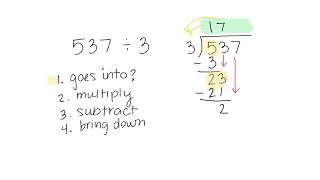 537 ÷ 3
1. goes into?
2. multiply
3. subtract
4. bring down
17
3 537
- 3
23
- 21
2